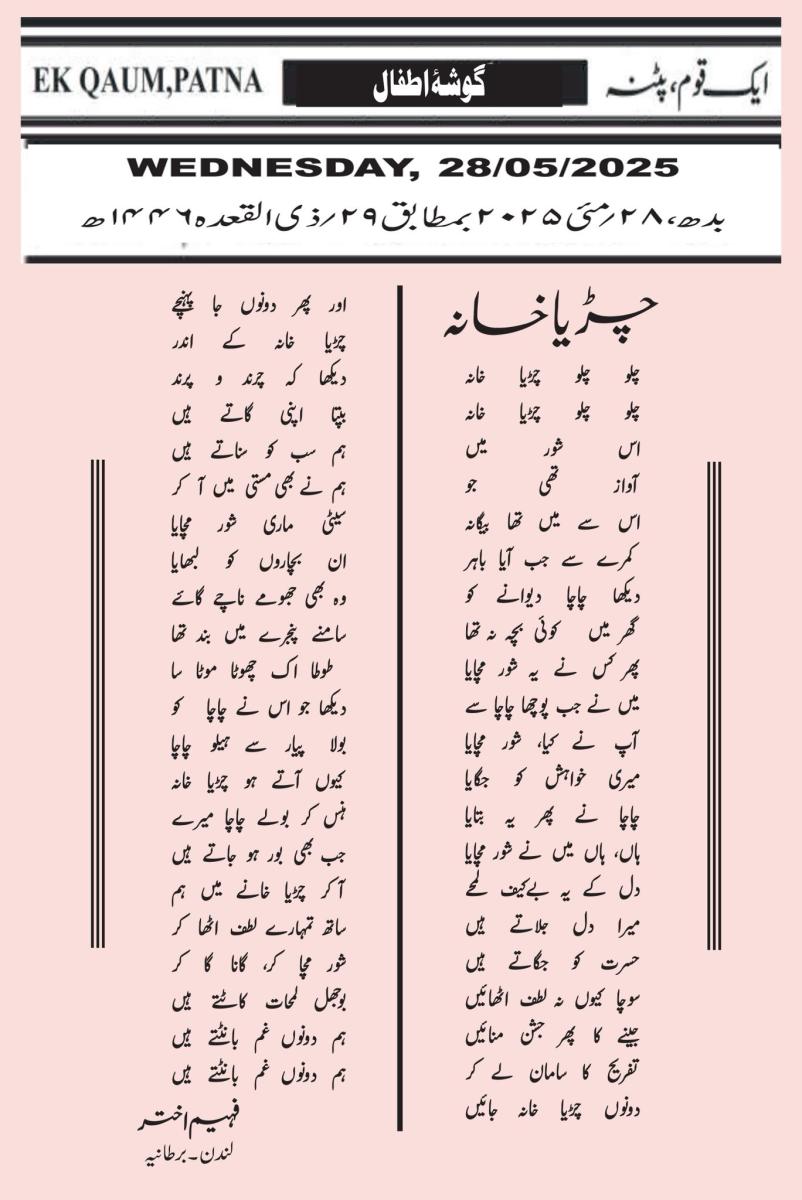 EK QAUM,PATNA
گوشۂ اطفال
ایک قوم، پٹنہ
WEDNESDAY, 28/05/2025
بدھ، ۲۸؍مئی ۲۰۲۵ بمطابق ۲۹؍ذی القعدہ ۱۴۴۶ھ
چڑیا خانہ
چلو چلو چڑیا خانہ
چلو چلو چڑیا خانہ
اس شور میں
آواز تھی جو
اس سے میں تھا بیگانہ
کمرے سے جب آیا باہر
دیکھا چاچا دیوانے کو
گھر میں کوئی بچہ نہ تھا
پھر کس نے یہ شور مچایا
میں نے جب پوچھا چاچا سے
آپ نے کیا، شور مچایا
میری خواہش کو جگایا
چاچا نے پھر یہ بتایا
ہاں، ہاں میں نے شور مچایا
دل کے یہ بےکیف لمحے
میرا دل جلاتے ہیں
حسرت کو جگاتے ہیں
سوچا کیوں نہ لطف اٹھائیں
جینے کا پھر جشن منائیں
تفریح کا سامان لے کر
دونوں چڑیا خانہ جائیں
اور پھر دونوں جا پہنچے
چڑیا خانہ کے اندر
دیکھا کہ چرند و پرند
بپتا اپنی گاتے ہیں
ہم سب کو سناتے ہیں
ہم نے بھی مستی میں آ کر
سیٹی ماری شور مچایا
ان بچاروں کو لبھایا
وہ بھی جھومے ناچے گائے
سامنے پنجرے میں بند تھا
طوطا اک چھوٹا موٹا سا
دیکھا جو اس نے چاچا کو
بولا پیار سے ہیلو چاچا
کیوں آتے ہو چڑیا خانہ
ہنس کر بولے چاچا میرے
جب بھی بور ہو جاتے ہیں
آ کر چڑیا خانے میں ہم
ساتھ تمہارے لطف اٹھا کر
شور مچا کر، گانا گا کر
بوجھل لمحات کاٹتے ہیں
ہم دونوں غم بانٹتے ہیں
ہم دونوں غم بانٹتے ہیں
فہیم اختر
لندن۔برطانیہ